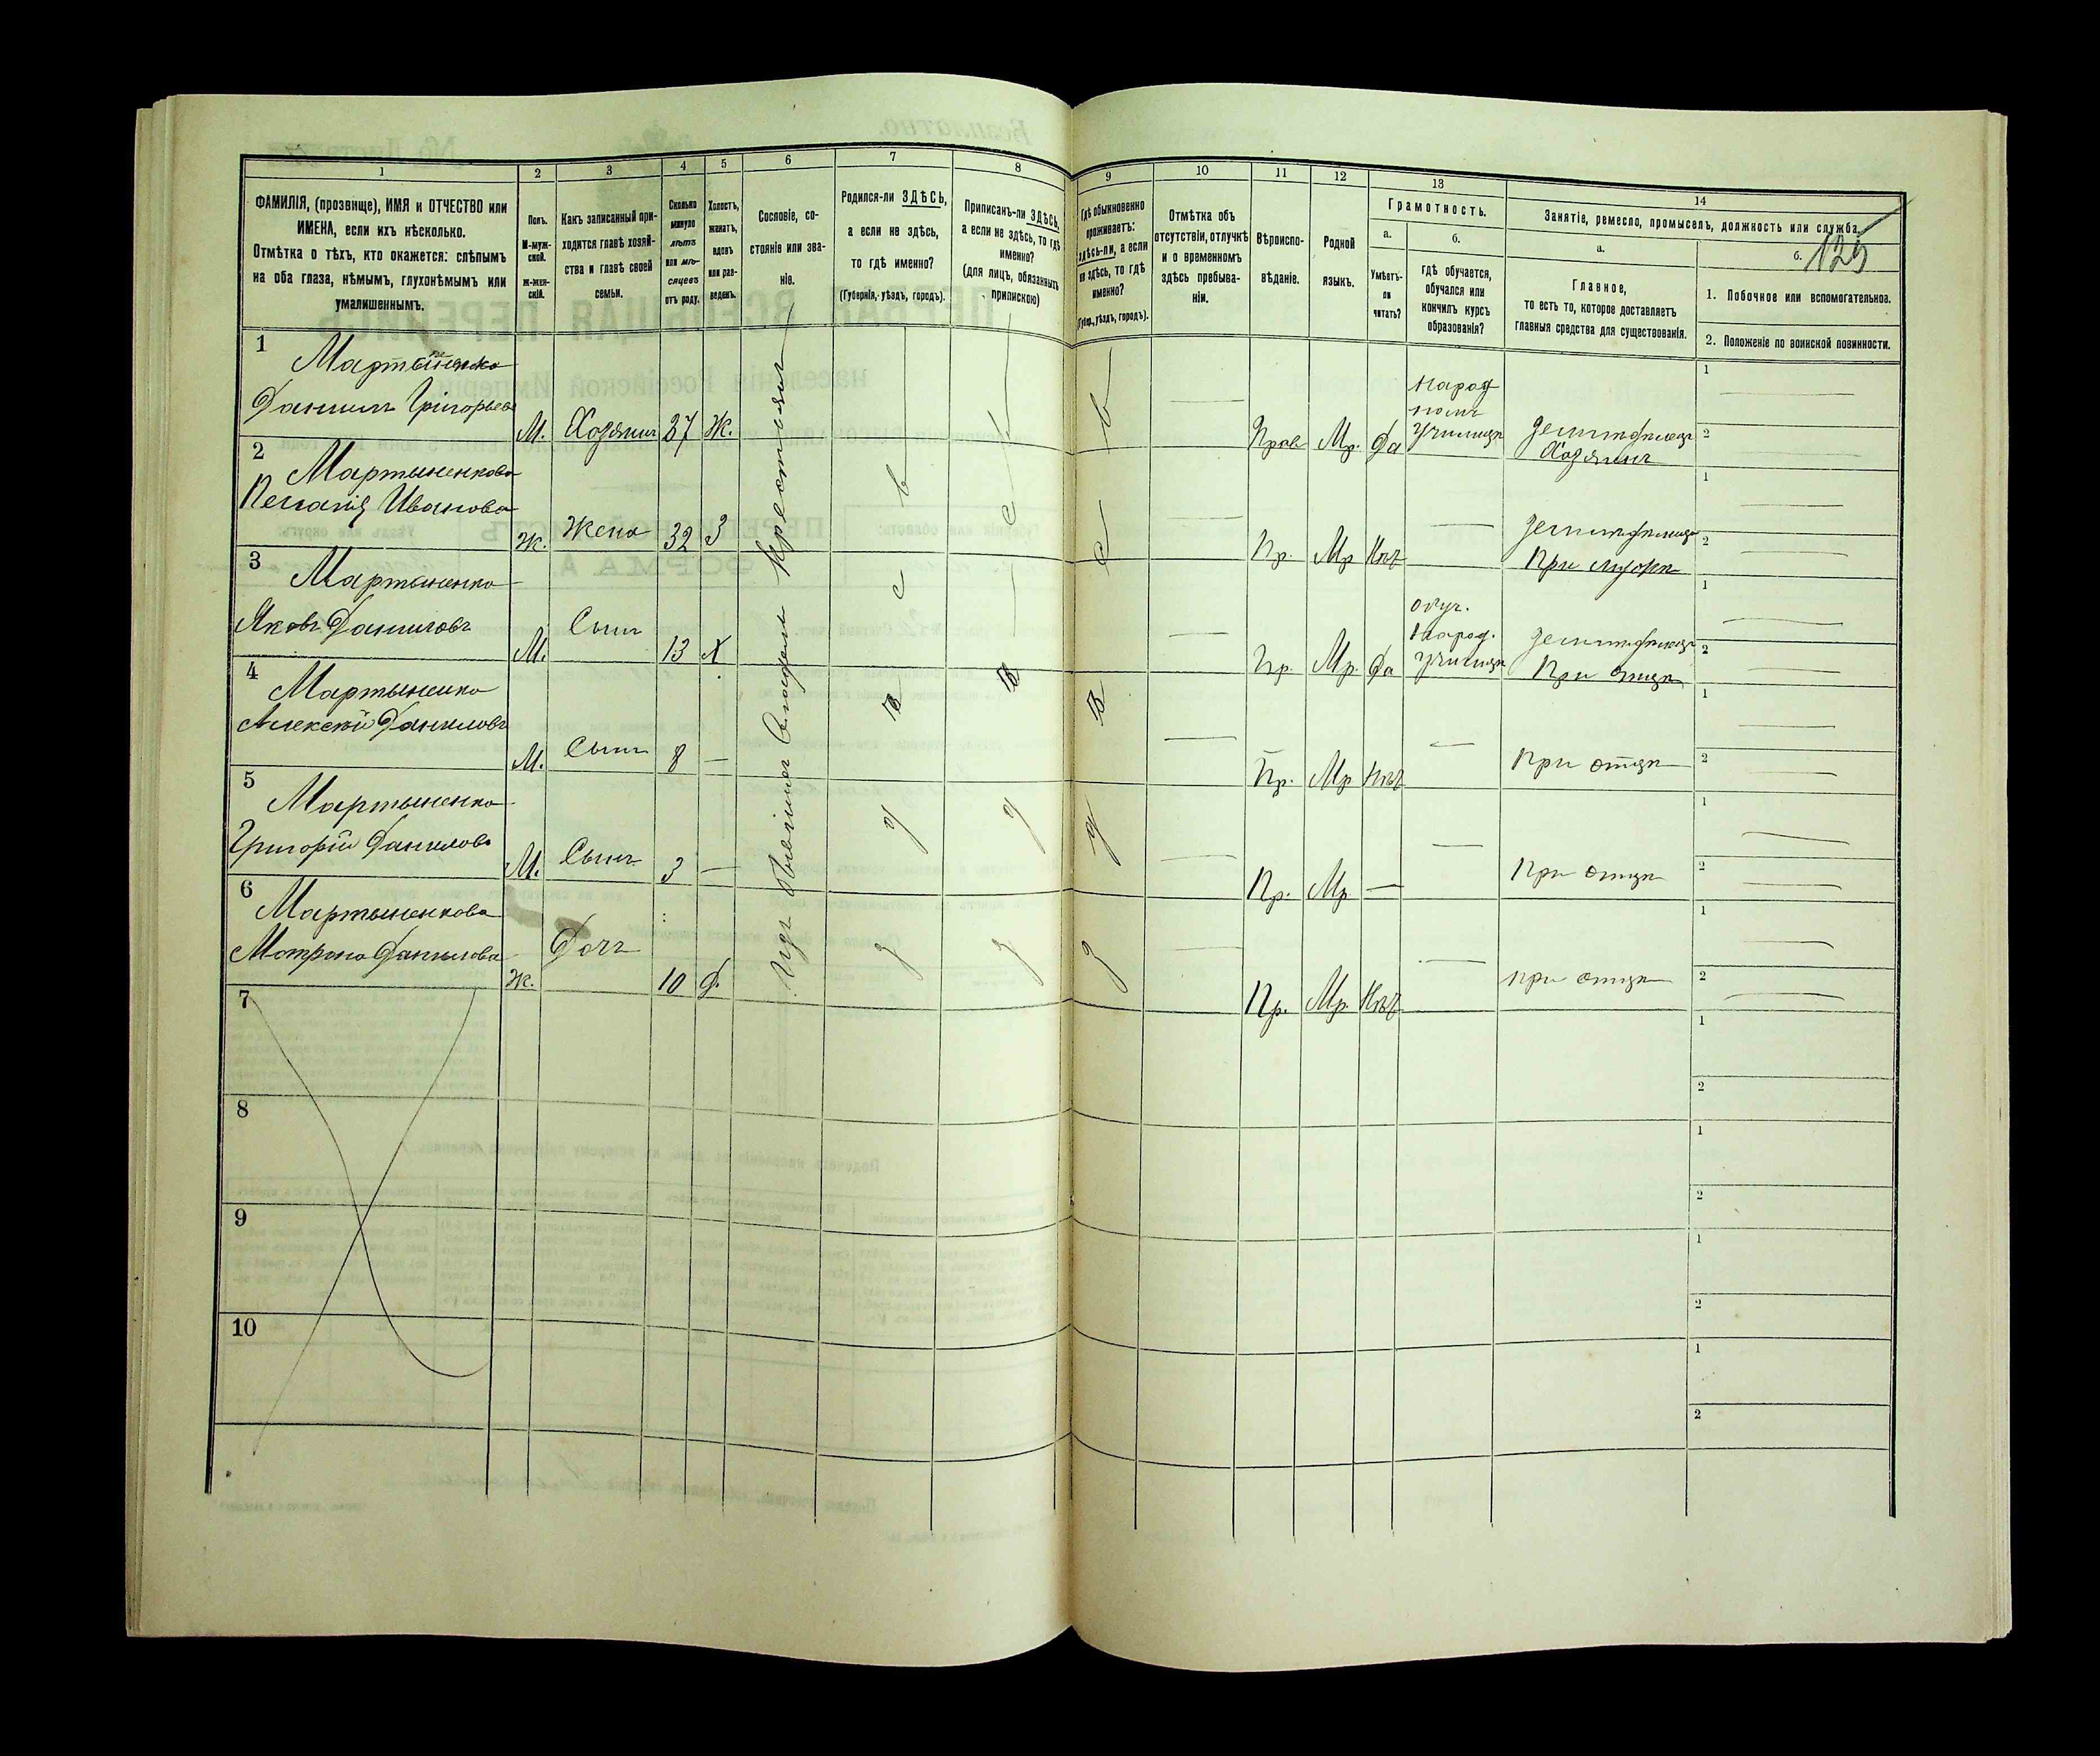 1
2
3
4
5
6
7
8
9
10
11
12
13
14
ФАМИЛІЯ, (прозвище), ИМЯ и ОТЧЕСТВО или
ИМЕНА, если ихъ нѣсколько.
Отмѣтка о тѣхъ, кто окажется: слѣпымъ
на оба глаза, нѣмымъ, глухонѣмымъ или
умалишеннымъ.
Полъ.
М-муж-
ской.
Ж-жен-
скій.
Какъ записанный при-
ходится главѣ хозяй-
ства и главѣ своей
семьи.
Сколько
минуло
лѣтъ
или мѣ-
сяцевъ
отъ роду.
Холостъ,
женатъ,
вдовъ
или раз-
веденъ.
Сословіе, со-
стояніе или зва-
ніе.
Родился-ли ЗДѢСЬ,
а если не здѣсь,
то гдѣ именно?
(Губернія, уѣздъ, городъ).
Приписанъ-ли ЗДѢСЬ,
а если не здѣсь, то гдѣ
именно?
(для лицъ, обязанныхъ
припискою)
Гдѣ обыкновенно
проживаетъ:
здѣсь-ли, а если
не здѣсь, то гдѣ
именно?
(Губерн., уѣздъ, городъ).
Отмѣтка объ
отсутствіи, отлучкѣ
и о временномъ
здѣсь пребыва-
ніи.
Вѣроиспо-
вѣданіе.
Родной
языкъ.
Грамотность.
а.
Умѣетъ-
ли
читать?
б.
гдѣ обучается,
обучался или
кончилъ курсъ
образованія?
Занятіе, ремесло, промыселъ, должность или служба.
а.
Главное,
то есть то, которое доставляетъ
главныя средства для существованія.
б.
125
1. Побочное или вспомогательное.
2. Положеніе по воинской повинности.
1
Мартыненко
Даниил Григорьевъ
М. Хозяинъ 37 Ж.
Прав Мр. Да
Народ
Училищѣ
Земледѣлецъ
Хозяинъ
2
Мартыненкова
Пелагія Иванова
Ж. Жена 32 З
Пр. Мр Нѣтъ
При мужѣ
3
Мартыненко
Яковъ Даниловъ
М. Сынъ 13 Х
Пр. Мр. Да
Обуч.
Народ.
Училищѣ
При отцѣ
4
Мартыненко
Алексѣй Даниловъ
М. Сынъ 8 —
Пр. Мр Нѣтъ
При отцѣ
5
Мартыненко
Григорій Даниловъ
М. Сынъ 3 —
Пр. Мр —
При отцѣ
6
Мартыненкова
Мотрона Данилова
Ж. Дочь 10 Д.
Пр. Мр. Нѣтъ
при отцѣ
Изъ бывшихъ Владѣль Крестьянъ
7
8
9
10